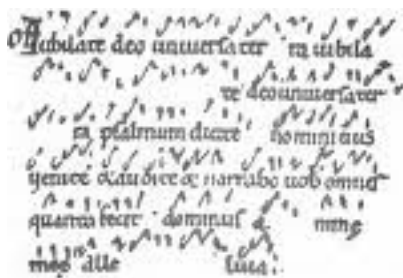 off Iubilate deo universa ter ra iubila
te deo universa ter
ra psalmum dicite nomini eius
venite & audite & narrabo vob omnia
quanta fecit dominus a nime
mee alle luia.